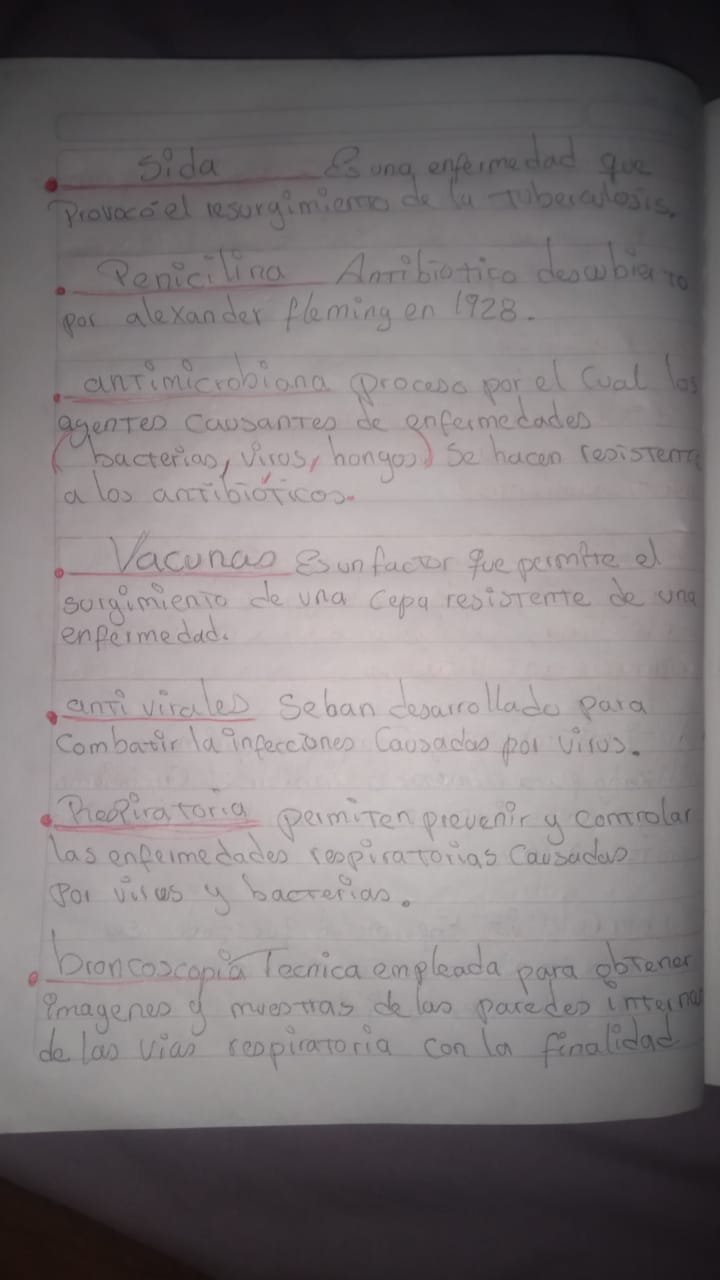 Sida Es una enfermedad que
Provocó el resurgimiento de la tuberculosis.
Penicilina Antibiotico descubierto
por alexander fleming en 1928.
antimicrobiana proceso por el cual los
agentes causantes de enfermedades
(bacterias, virus, hongos) se hacen resistente
a los antibióticos.
Vacunas Es un factor que permitre el
surgimiento de una cepa resistente de una
enfermedad.
anti virales Se han desarrollado para
combatir la infecciones causadas por virus.
Respiratoria permiten prevenir y controlar
las enfermedades respiratorias causadas
por virus y bacterias.
broncoscopia Tecnica empleada para obtener
imagenes y muestras de las paredes interna
de las vias respiratoria con la finalidad